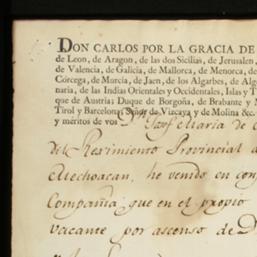 DON CARLOS POR LA GRACIA DE
de Leon, de Aragon, de las dos Sicilias, de Jerusalen,
de Valencia, de Galicia, de Mallorca, de Menorca, de
Córcega, de Murcia, de Jaen, de los Algarbes, de Alg
naria, de las Indias Orientales y Occidentales, Islas y T
que de Austria; Duque de Borgoña, de Brabante y M
Tirol y Barcelona; Señor de Vizcaya y de Molina &c.
y méritos de vos Dn Josef Maria de
del Regimiento Provincial d
Mechoacan, he venido en con
Compañia que en el propio
vacante por ascenso de D